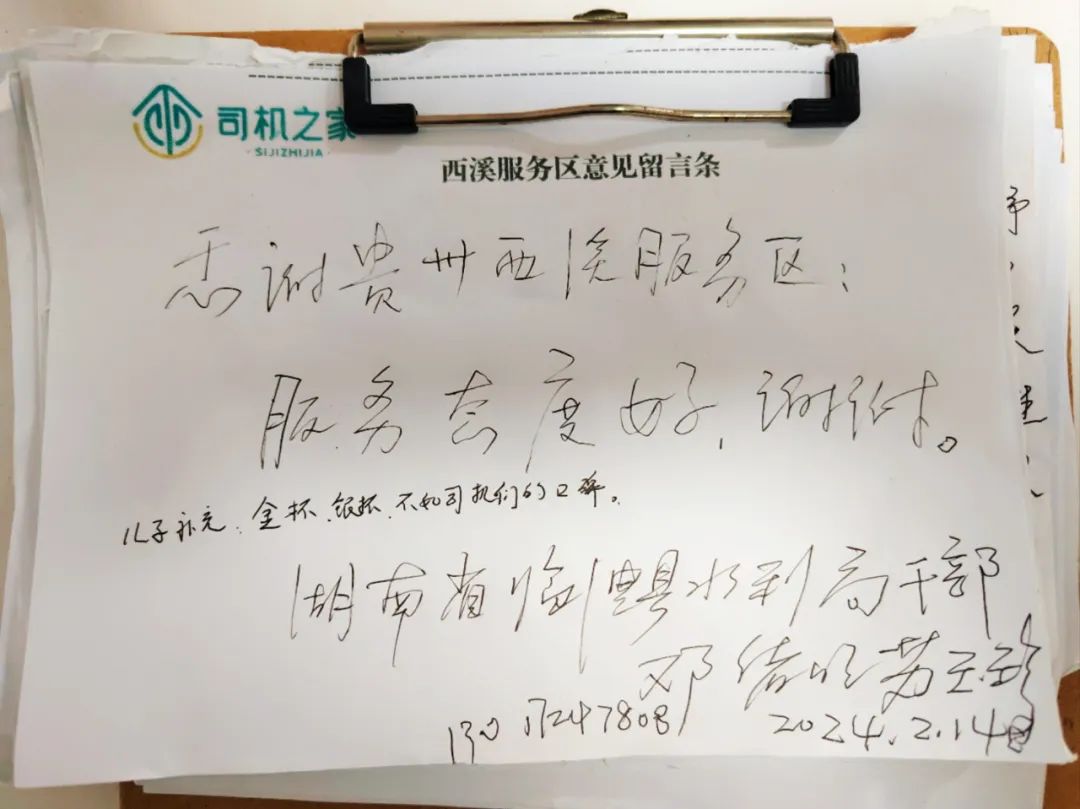 司机之家
SIJIZHIJIA
西溪服务区意见留言条
感谢贵州西溪服务区：
服务态度好，谢谢。
儿子补充：金杯、银杯、不如司机们的口碑。
湖南省临澧县水利局干部
邓
2024.2.14日